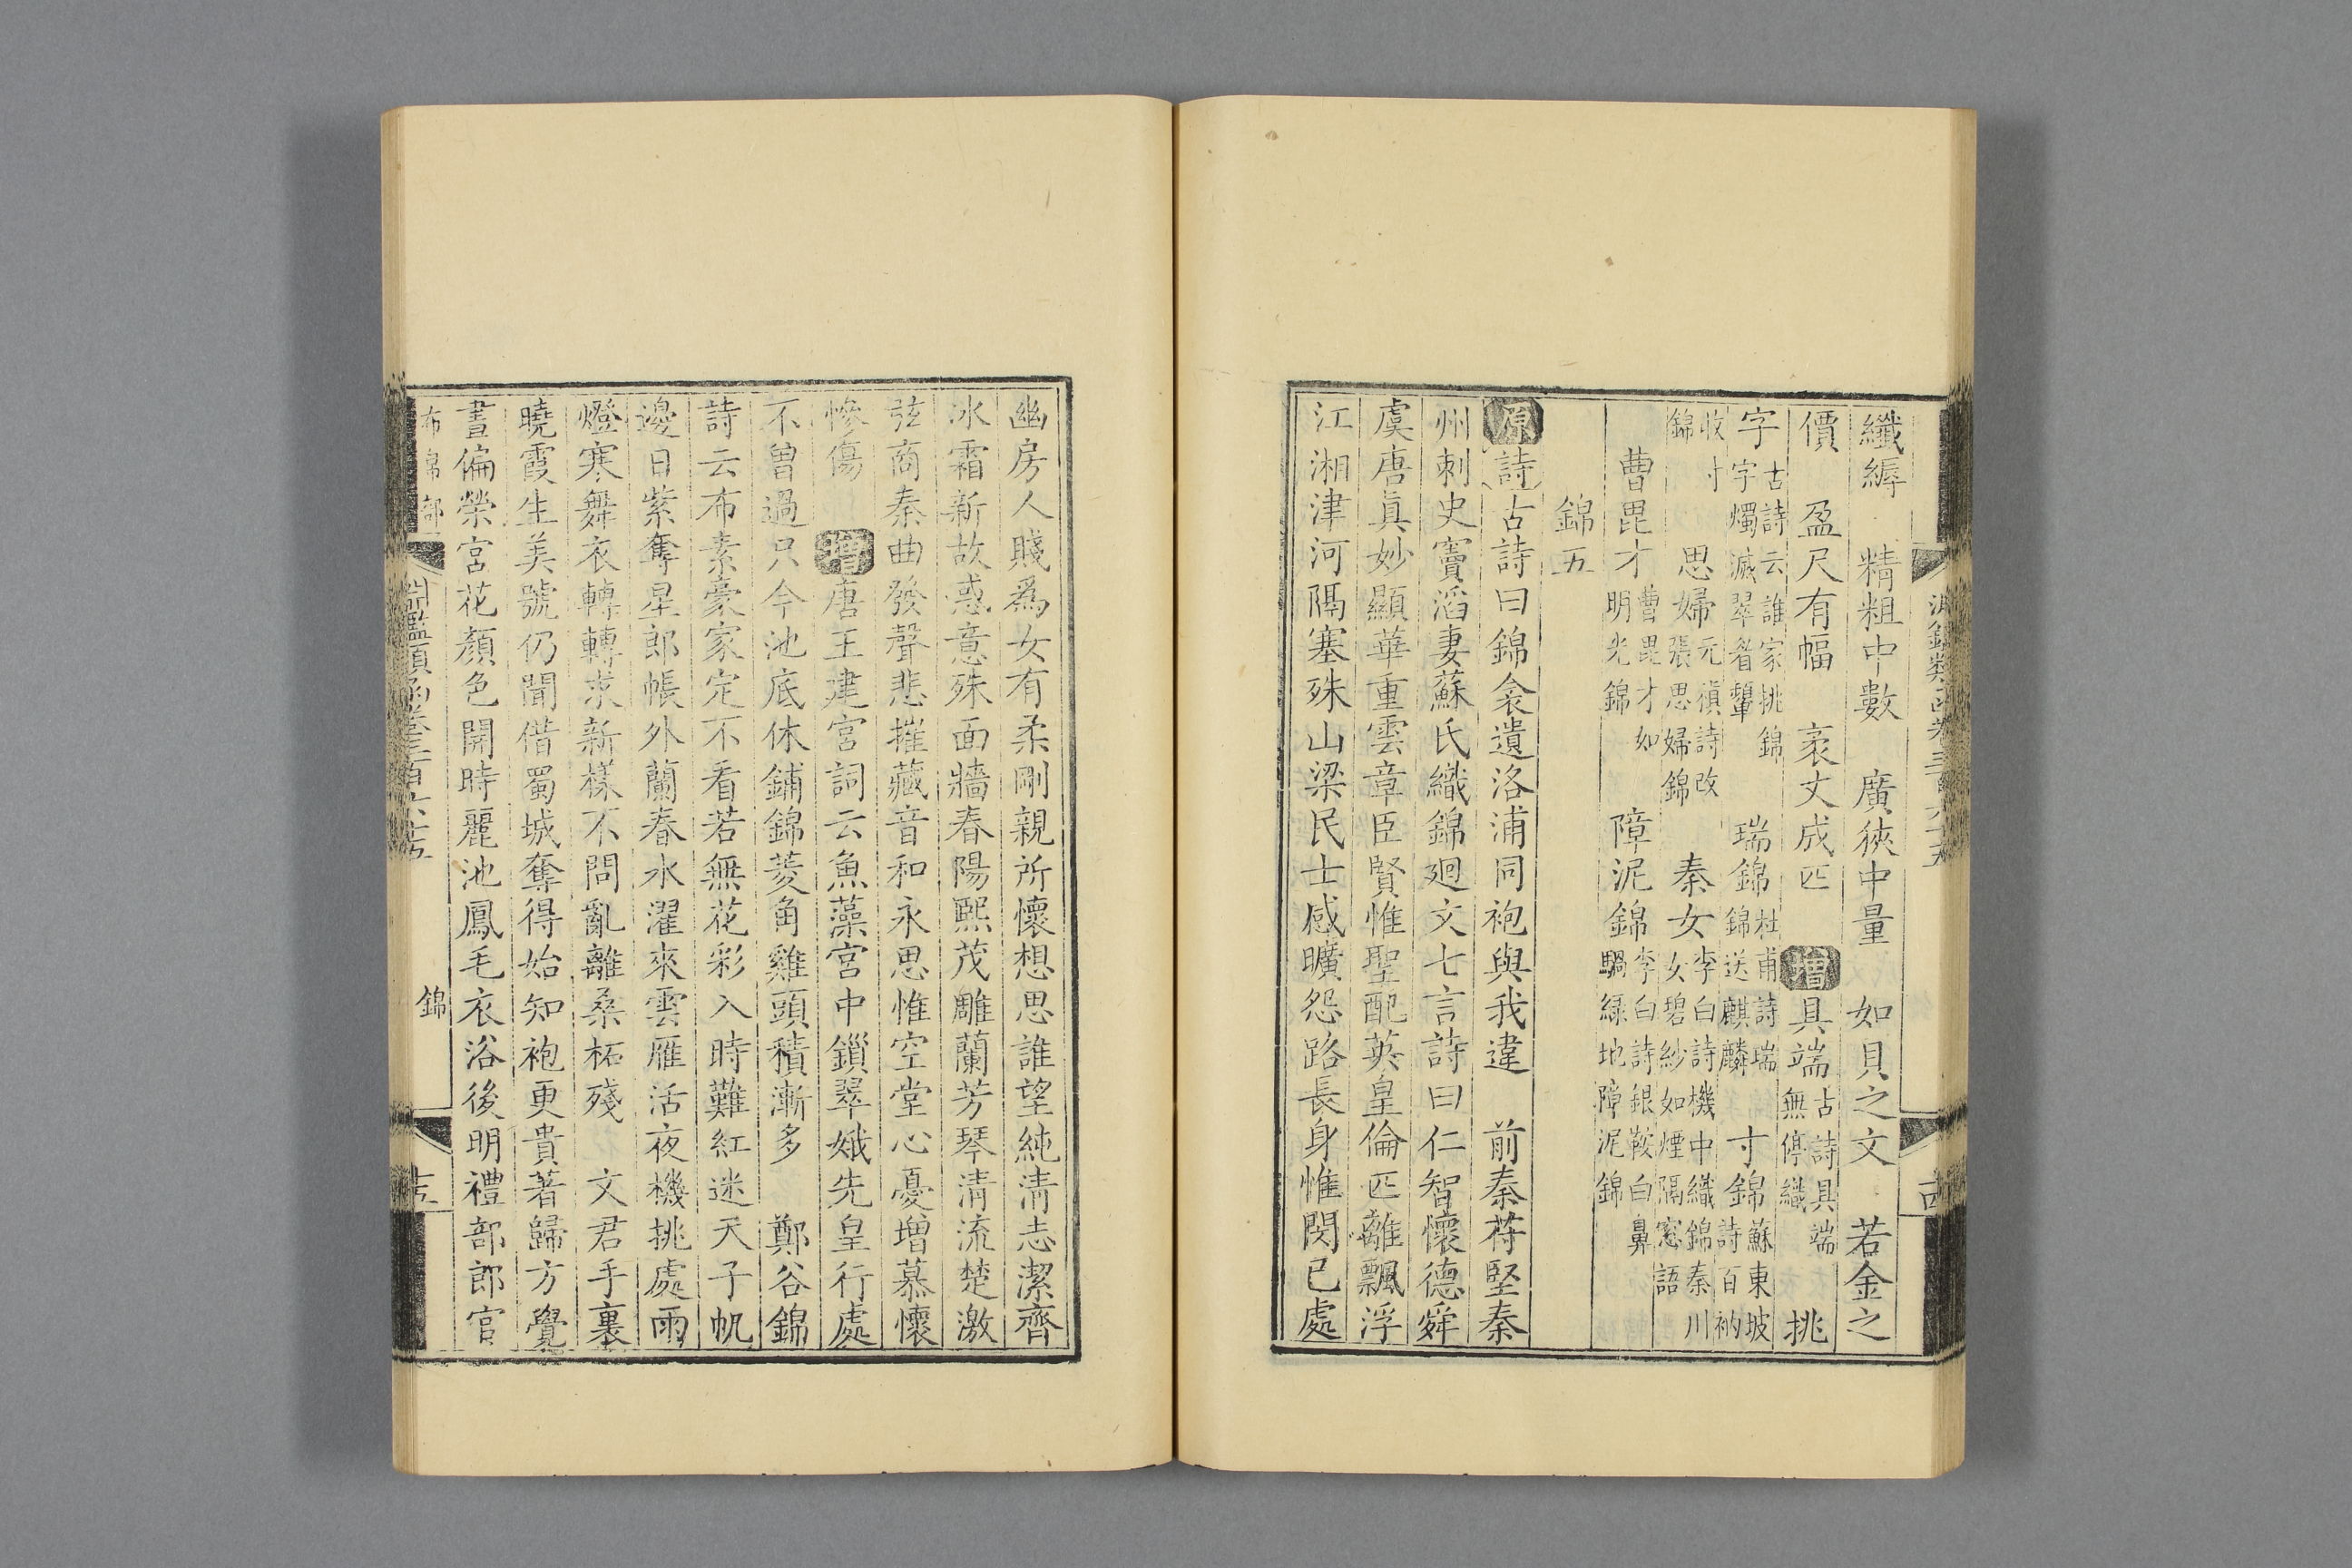 纖縟　精粗中數　廣狹中量　如貝之文　若金之
價　盈尺有幅　裹丈成匹　增　具端古詩具端無停織　挑
字古詩云誰家挑錦字燭滅翠眉顰　瑞錦杜甫詩瑞錦送麒麟　寸錦蘇東坡詩百衲
收寸錦　思婦元稹詩改張思婦錦　秦女李白詩機中織錦秦川女碧紗如煙隔窓語
曹毘才曹毘才如明光錦　障泥錦李白詩銀鞍白鼻騧綠地障泥錦
錦五
原　詩　古詩曰錦衾遺洛浦同袍與我違　前秦苻堅秦
州刺史竇滔妻蘇氏織錦廻文七言詩曰仁智懷德舜
虞唐眞妙顯華重雲章臣賢惟聖配英皇倫匹離飄浮
江湘津河隔塞殊山梁民士感曠怨路長身惟閔已處
幽房人賤爲女有柔剛親所懷想思誰望純清志潔齊
冰霜新故惑意殊面牆春陽熙茂雕蘭芳琴清流楚激
弦商秦曲發聲悲摧藏音和永思惟空堂心憂增慕懷
慘傷　增　唐王建宮詞云魚藻宮中鎖翠娥先皇行處
不曾過只今池底休鋪錦菱角雞頭積漸多　鄭谷錦
詩云布素豪家定不看若無花彩入時難紅迷天子帆
邊日紫奪星郎帳外蘭春水濯來雲雁活夜機挑處雨
燈寒舞衣轉轉求新樣不問亂離桑柘殘　文君手裏
曉霞生美號仍聞借蜀城奪得始知袍更貴著歸方覺
晝偏榮宮花顏色開時麗池鳳毛衣浴後明禮部郎官
布帛部　淵鑑類函卷三百六十五　錦